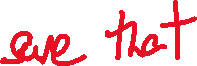 save that